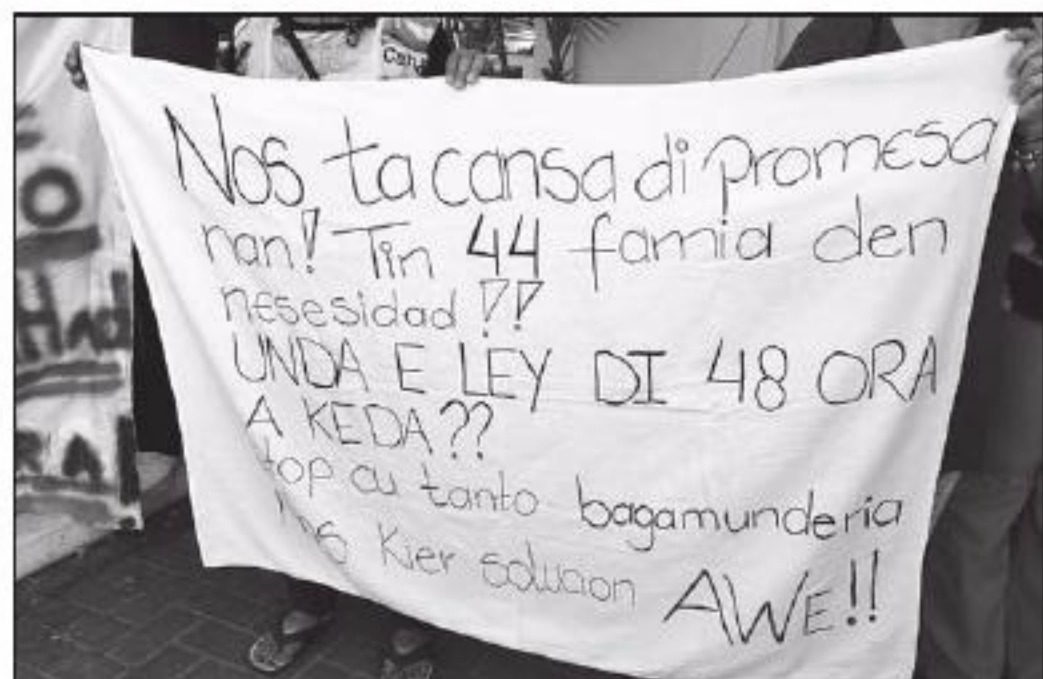 Nos ta cansa di promesa
nan! Tin 44 famia den
nesesidad!?
UNDA E LEY DI 48 ORA
A KEDA??
top cu tanto bagamunderia
Kier solucion AWE!!